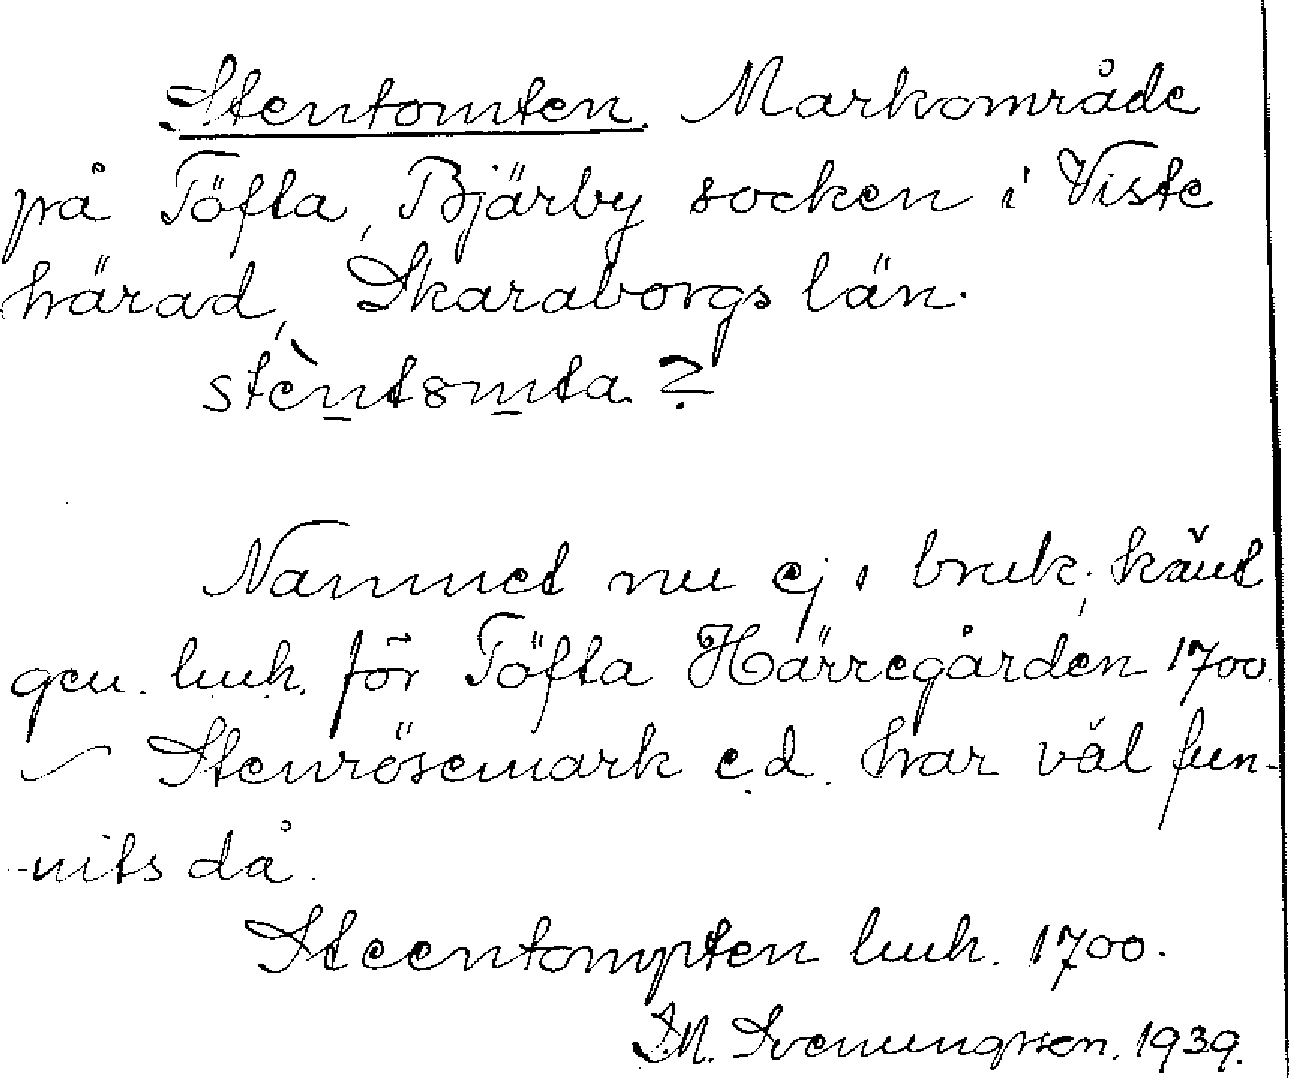 Stentomten. Markområde
på Töfta, Bjärby socken i Viste
härad, Skaraborgs län.
stèntomta. ?
Namnet nu ej i bruk; känt
gen. lmh. för Töfta Härregården 1700.
– Stenrösemark e.d. har väl fun-
-nits då.
Steentompten lmh. 1700.
Svenungsson. 1939.